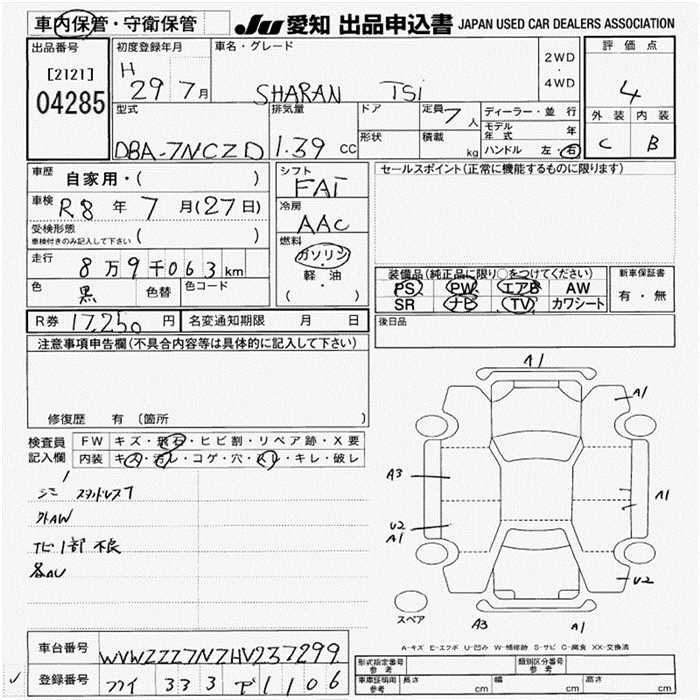 車内保管・守衛保管 JU 愛知 出品申込書 JAPAN USED CAR DEALERS ASSOCIATION
出品番号 初度登録年月 車名・グレード 2WD ・ 4WD 評価点
[2121] H 29 7月 SHARAN TSi 4
04285
型式 排気量 ドア 定員 7 人 ディーラー・並行 外装 内装
モデル年式 年
DBA-7NCZD 1.39 cc 形状 積載 kg ハンドル 左・右 C B
車歴 自家用・( ) シフト セールスポイント(正常に機能するものに限ります)
FAT
車検 R8 年 7 月(27日) 冷房
AAC
受検形態
車検付きのみ記入して下さい ( ) 燃料
ガソリン
走行 8万9千063km ・
軽・油 装備品(純正品に限り○をつけてください) 新車保証書
色 黒 色替 色コード ( ) PS PW エアB AW 有・無
SR ナビ TV カワシート
R券 17,250 円 名変通知期限 月 日 後日品
注意事項申告欄(不具合内容等は具体的に記入して下さい)
A1
A1
修復歴 有 〔箇所 〕
検査員 FW キズ・飛石・ヒビ割・リペア跡・X要
記入欄 内装 キズ・汚レ・コゲ・穴・スレ・キレ・破レ
A3
A1
外AW
U2
A1
ナビ1部不良
U2
スペア
A3 A1
A-キズ E-エクボ U-凹み W-補修跡 S-サビ C-腐食 XX-交換済
車台番号 WVWZZZ7NZHV237299
形式指定番号 参考 類別区分番号 参考
登録番号 333 1106
車庫証明用 参考 長さ cm 幅 cm 高さ cm